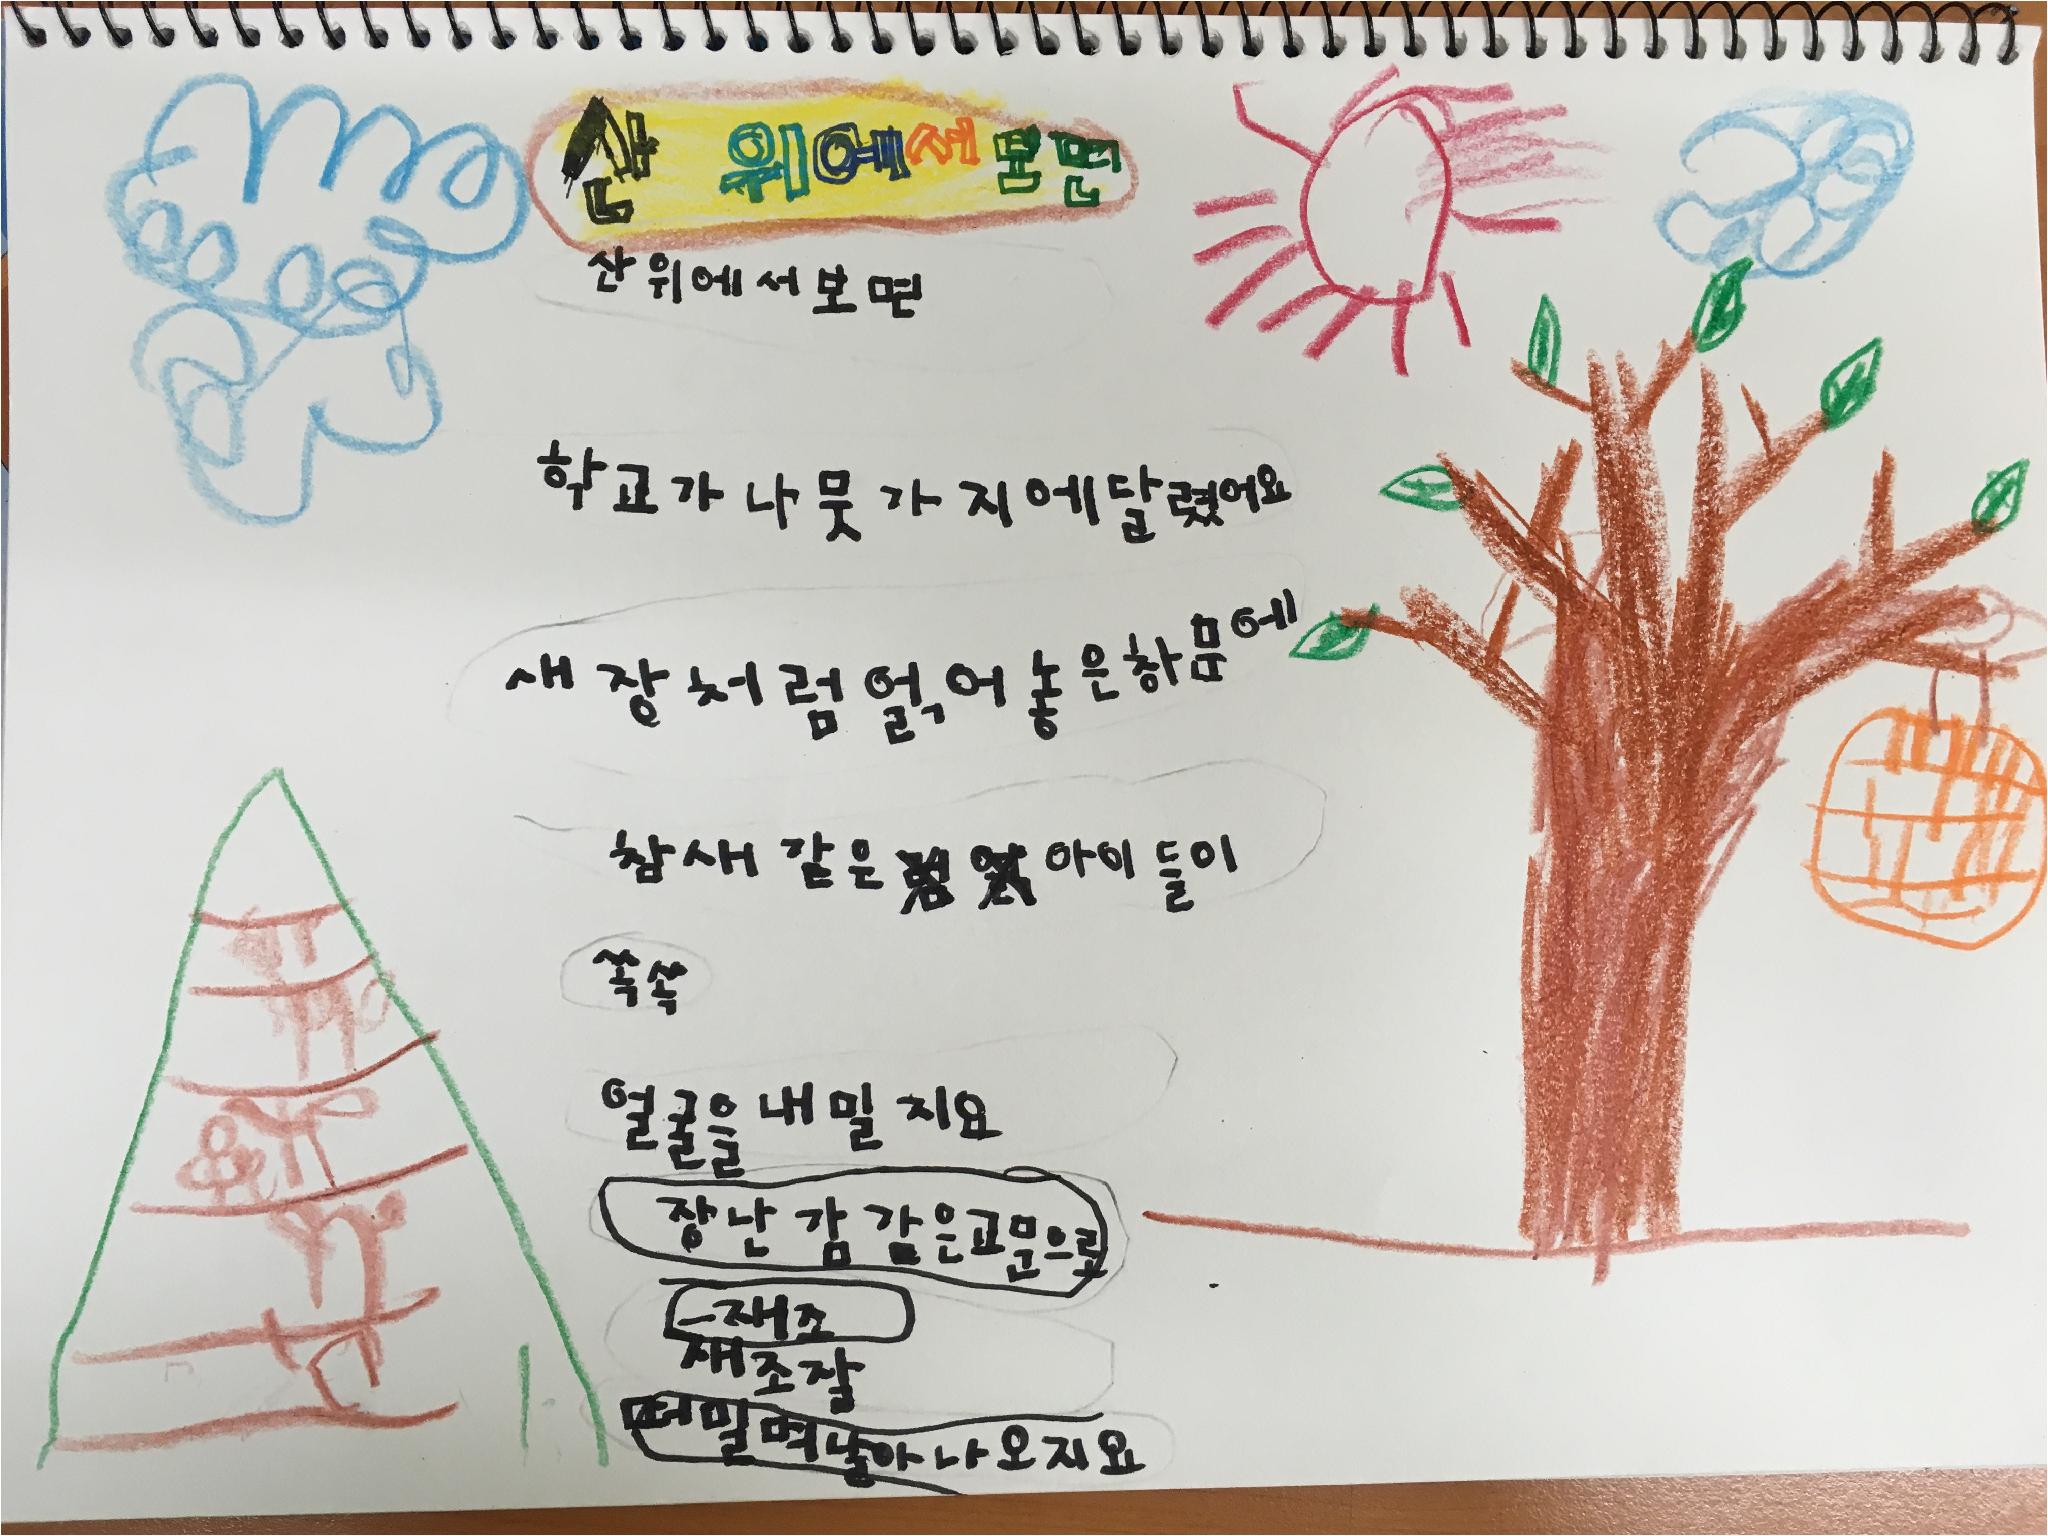 산 위에서 보면
산 위에서 보면
학교가 나뭇가지에 달렸어요
새장처럼 얽어 놓은 창문에
참새 같은 아이들이
쏙쏙
얼굴을 내밀지요
장난감 같은 교문으로
재조
재조잘
떠밀며 날아 나오지요